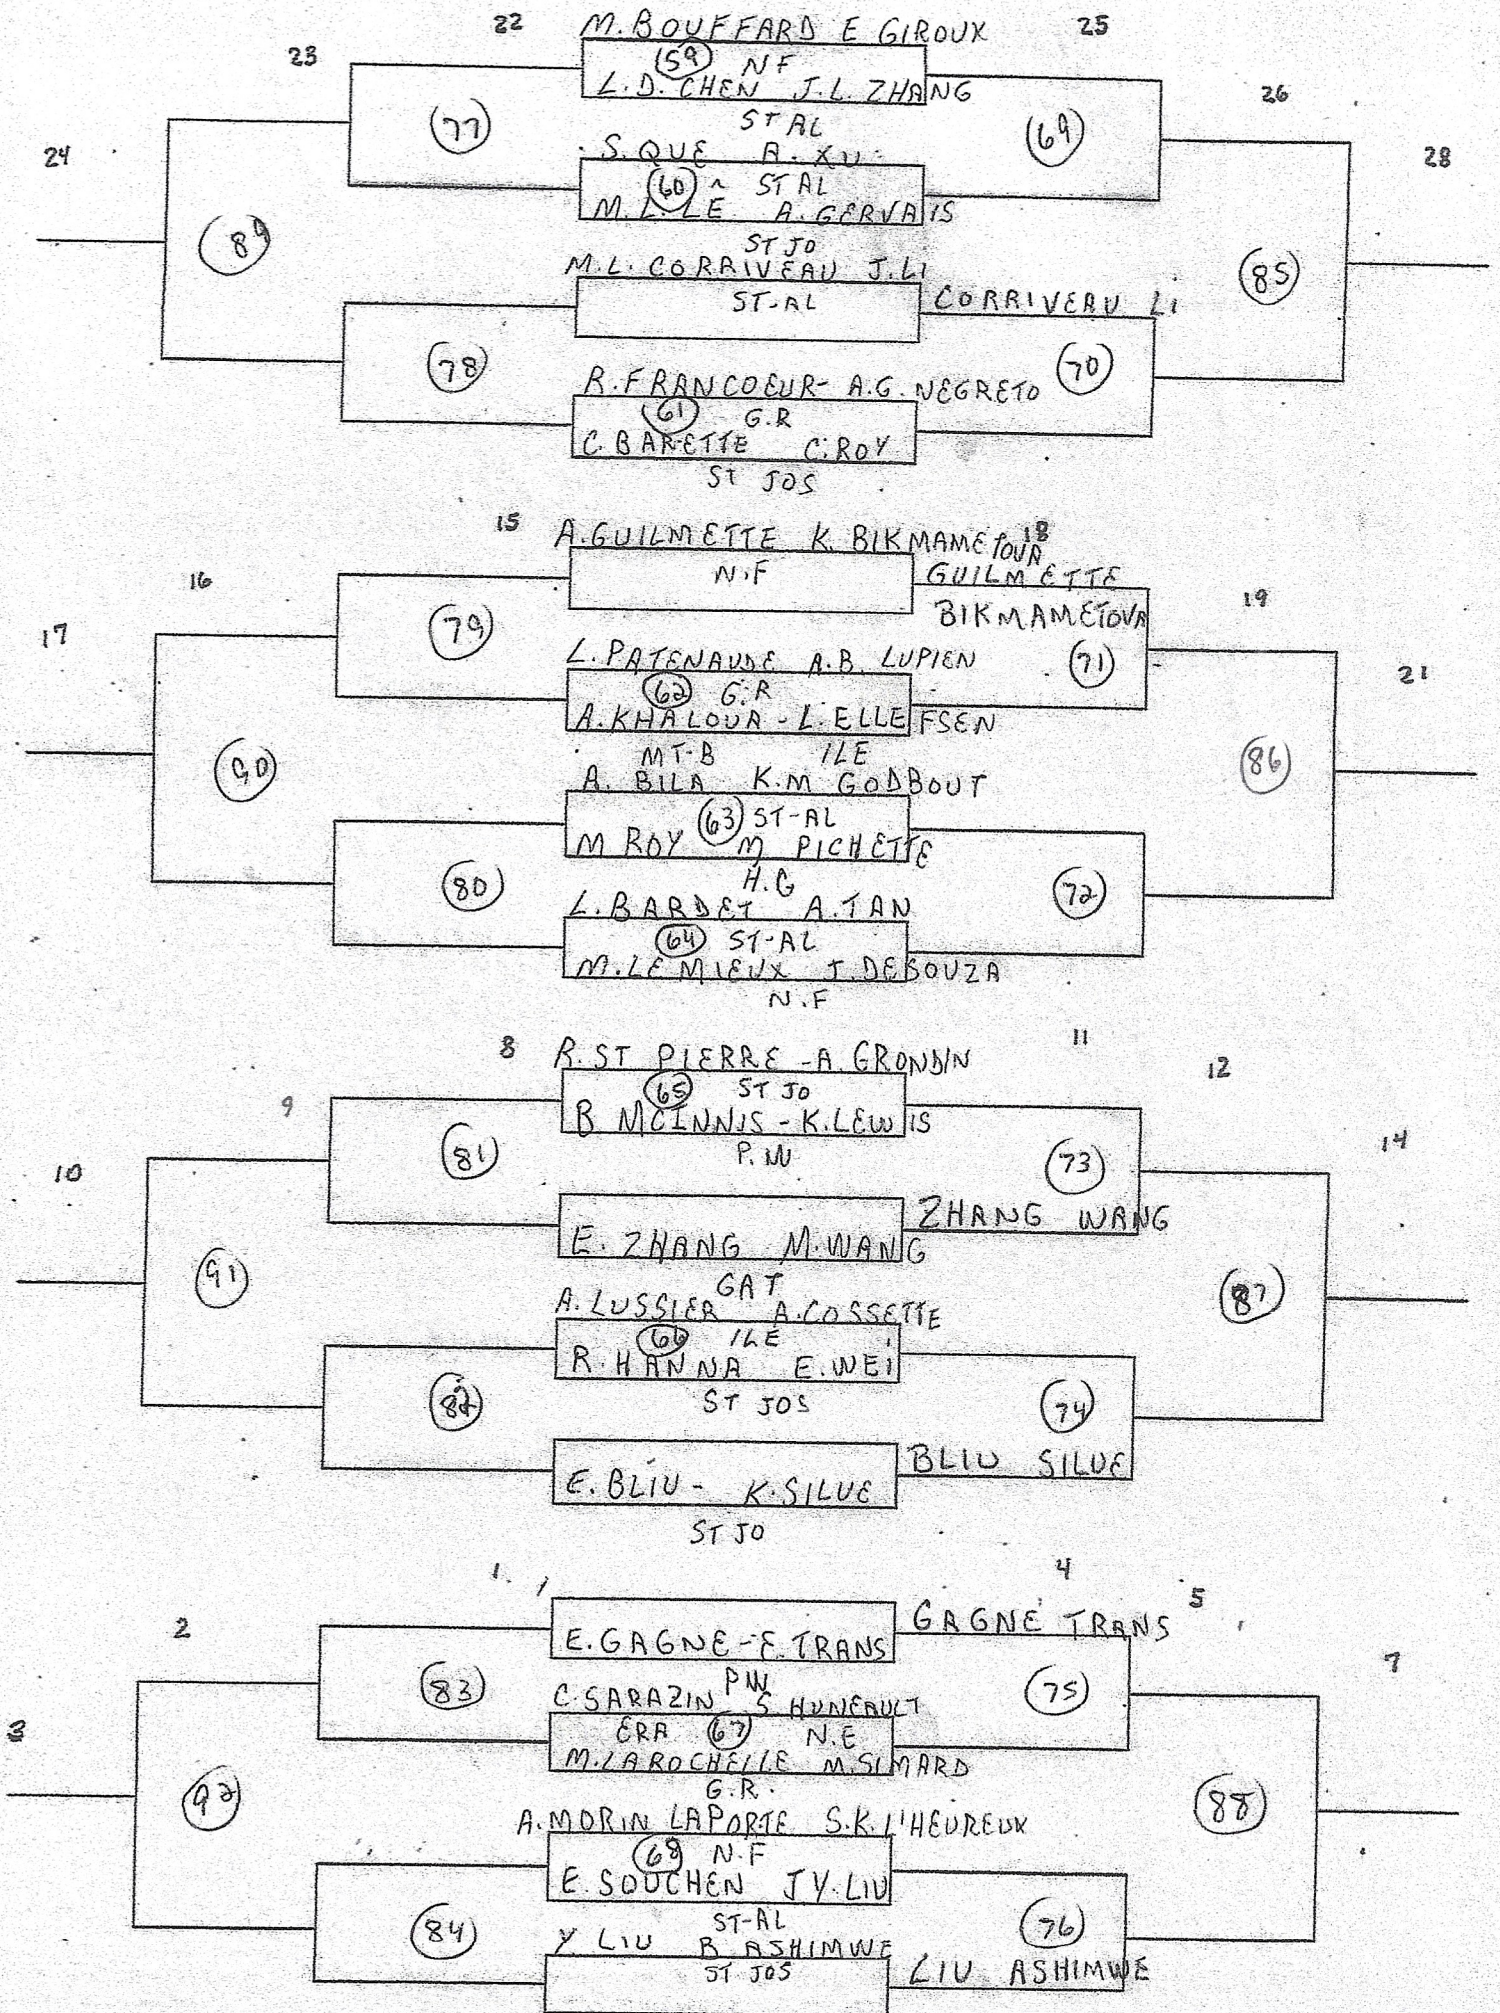 22 M. BOUFFARD E GIROUX 25
23 (59) NF
L.D. CHEN J.L. ZHANG 26
(77) ST AL (69)
24 S. QUE A. XU 28
(60) ST AL
M.L. LÊ A. GERVAIS
(89) ST JO
M.L. CORRIVEAU J.LI (85)
ST-AL CORRIVEAU Li
(78) (70)
R. FRANCOEUR- A.G. NEGRETO
(61) G.R
C. BARETTE C. ROY
ST JOS
15 A. GUILMETTE K. BIKMAMETOVA 18
16 N.F GUILMETTE
BIKMAMETOVA 19
17 (79)
L. PATENAUDE A.B. LUPIEN (71) 21
(62) G.R
A. KHALOUA - L. ELLEFSEN
MT-B ILE
(90) A. BILA K.M GODBOUT (86)
(63) ST-AL
M ROY M PICHETTE
(80) H.G (72)
L. BARDET A. TAN
(64) ST-AL
M. LEMIEUX J. DESOUZA
N.F
8 R. ST PIERRE - A. GRONDIN 11
9 (65) ST JO 12
B MCINNIS - K. LEWIS
10 (81) P.W (73) 14
ZHANG WANG
E. ZHANG M. WANG
(91) GAT (87)
A. LUSSIER A. COSSETTE
(66) ILE
R. HANNA E. WEi
(82) ST JOS (74)
BLIU SILUE
E. BLIU - K. SILUE
ST JO
1 4
2 GAGNE TRANS 5
E. GAGNE - E. TRANS
(83) PW (75) 7
C. SARAZIN S HUNEAULT
3 ERA (67) N.E
M. LAROCHELLE M. SIMARD
(92) G.R. (88)
A. MORIN LAPORTE S.K. L'HEUREUX
(68) N.F
E. SOUCHEN J Y. LIU
(84) ST-AL (76)
Y LIU B ASHIMWE
ST JOS LIU ASHIMWE